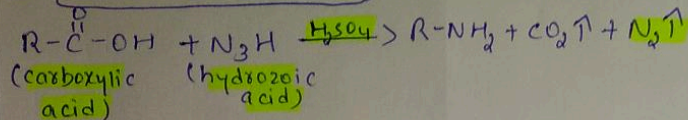 O
||
R-C-OH + N₃H —H₂SO₄—> R-NH₂ + CO₂↑ + N₂↑
(carboxylic acid) (hydrozoic acid)